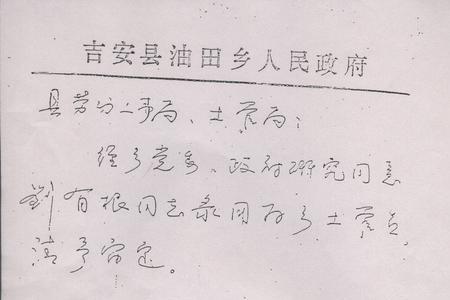 吉安县油田乡人民政府
县劳动人事局、土管局：
经乡党委、政府研究同意
刘有根同志录用为乡土管员
请予审定。